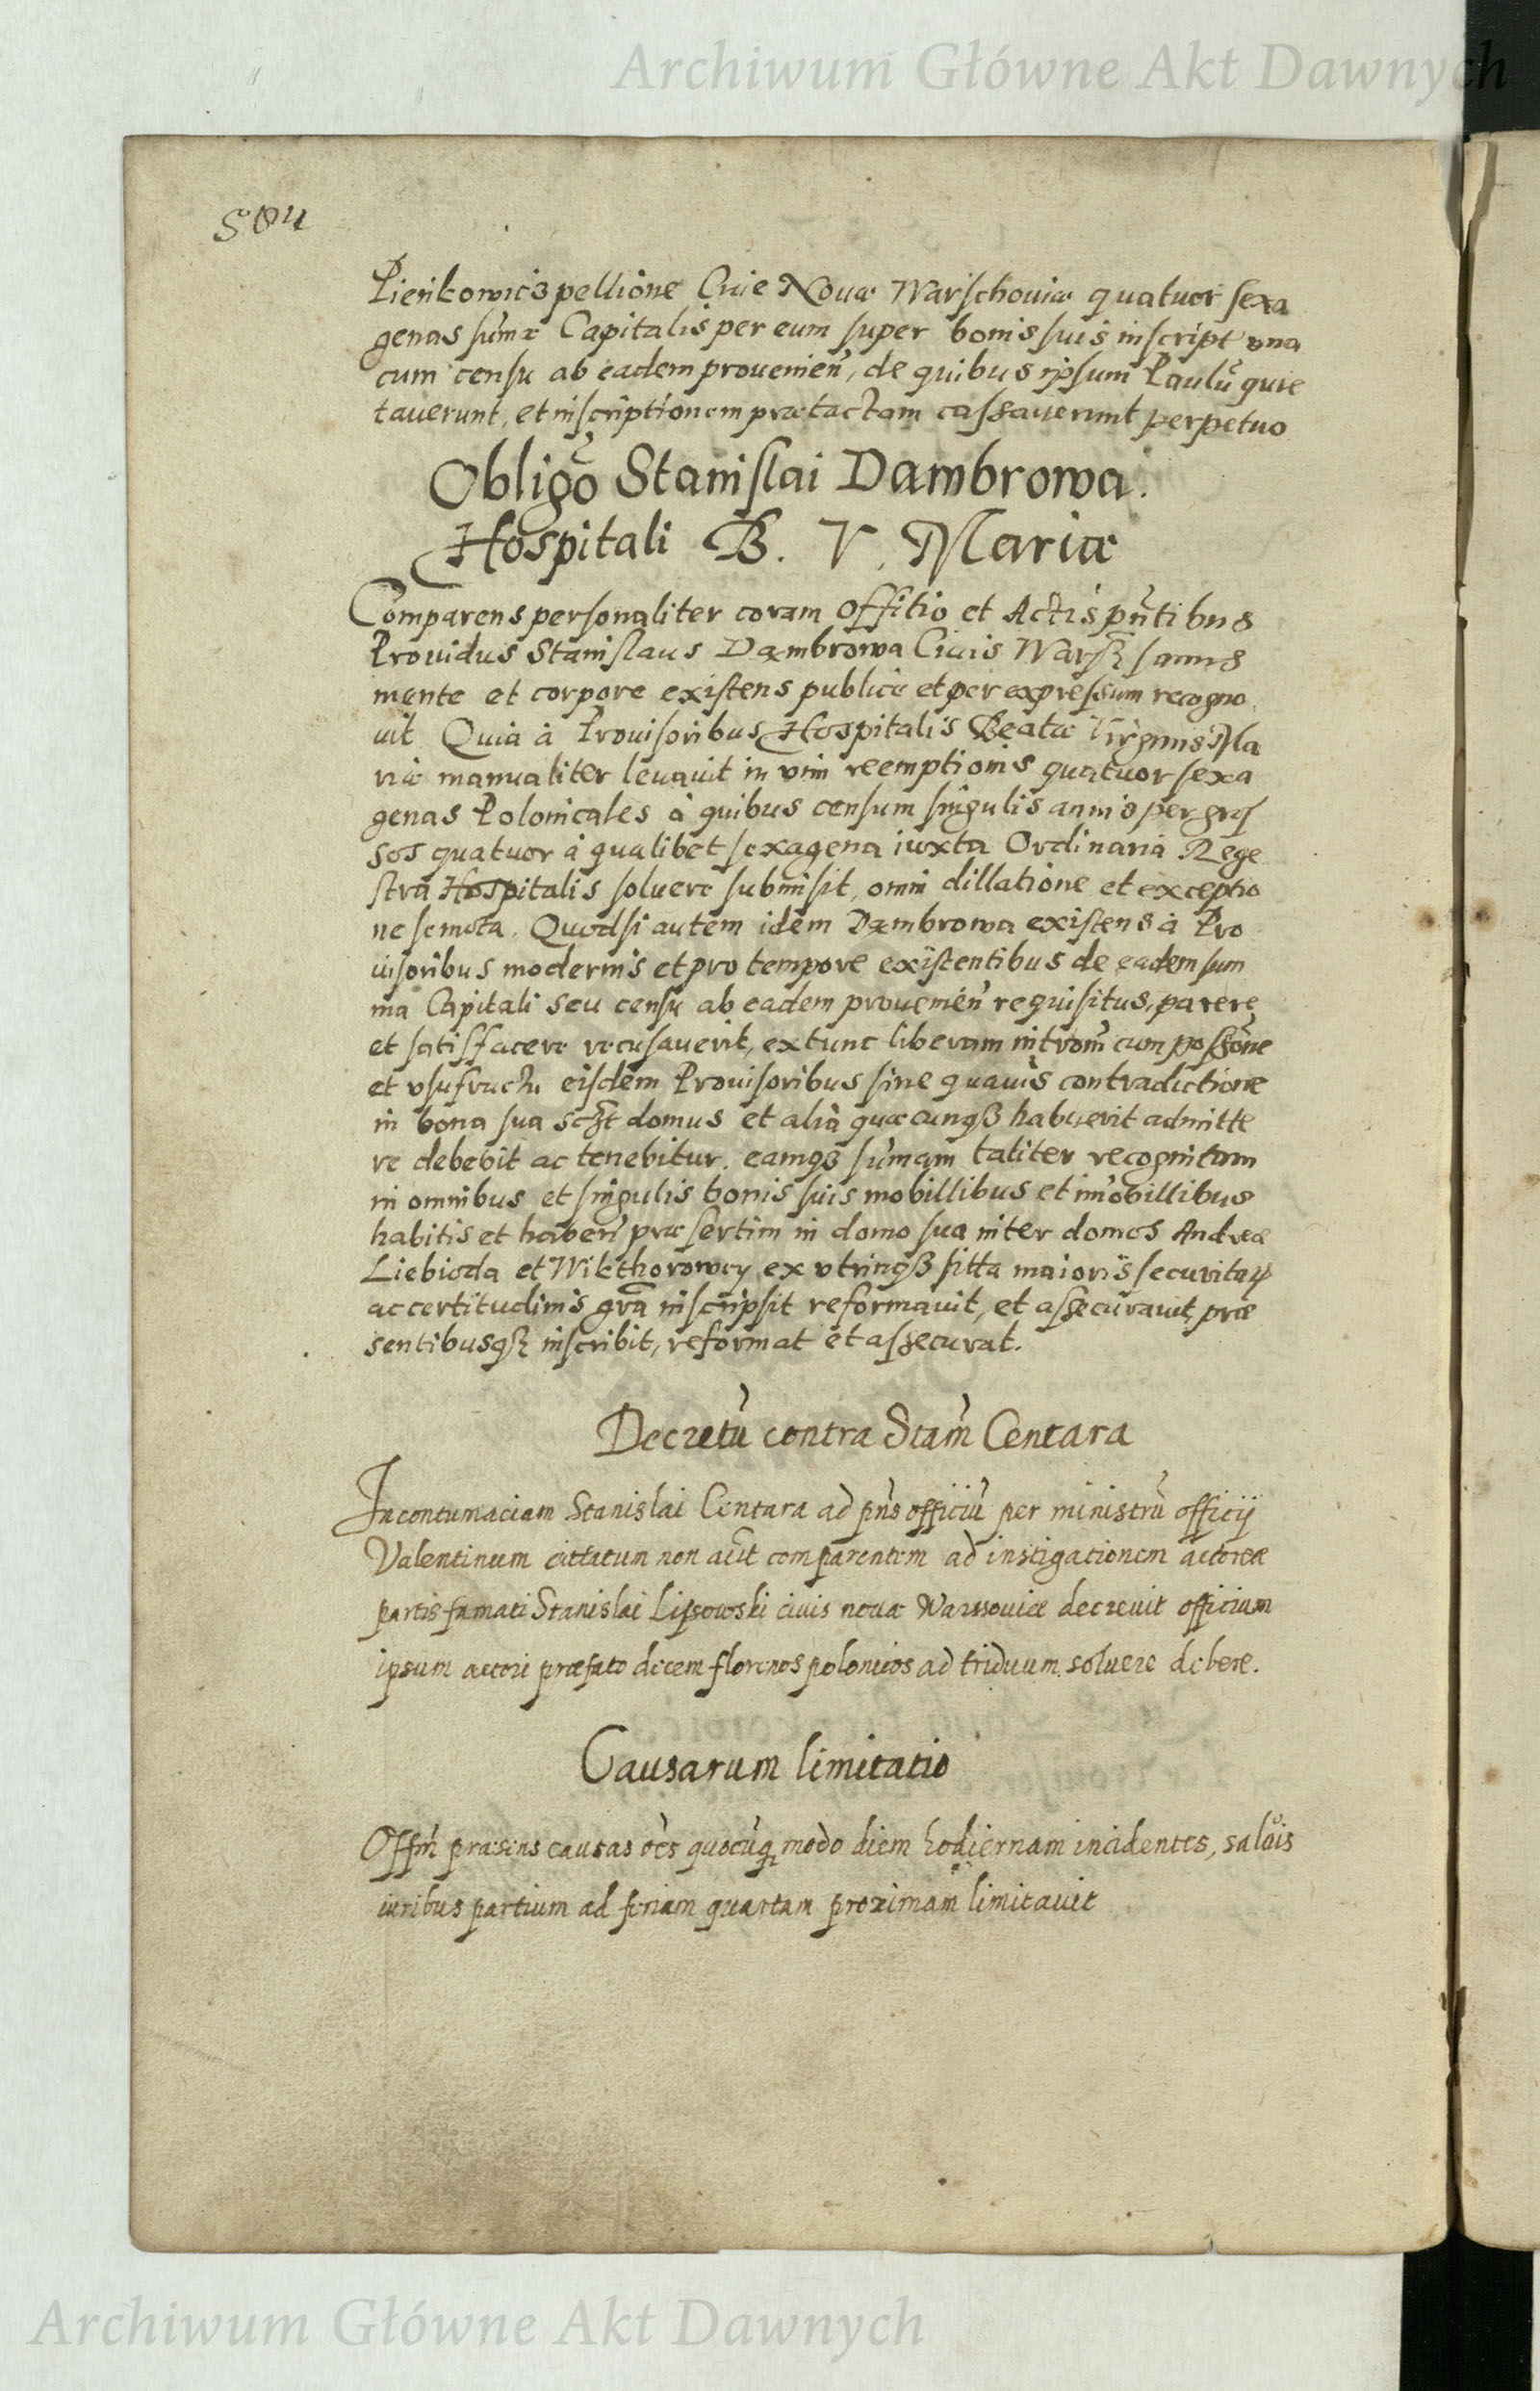 Archiwum Główne Akt Dawnych
504
Pienkowicz pellione Ciuie Nouæ Warschouiæ quatuor sexa
genas sum̃æ Capitalis per eum super bonis suis inscript una
cum censu ab eadem prouenien̄, de quibus ipsum Paulū quie
tauerunt, et inscriptionem prætactam cassauerunt perpetuo
Obligō Stanislai Dambrowa.
Hospitali B. V. Mariæ
Comparens personaliter coram Offitio et Actis pn̄tibus
Prouidus Stanislaus Dambrowa Ciuis Warsz sanus
mente et corpore existens publice et per expressum recogno
uit Quia à Prouisoribus Hospitalis Beatæ Virginis Ma
riæ manualiter leuauit in vim reemptionis quatuor sexa
genas Polonicales à quibus censum singulis annis per gros
sos quatuor à qualibet sexagena iuxta Ordinaria Rege
stra Hospitalis soluere submisit, omni dillatione et exceptio
ne semota. Quodsi autem idem Dambrowa existens à Pro
uisoribus modernis et pro tempore existentibus de eadem sum
ma Capitali seu censu ab eadem prouenien̄ requisitus, parere
et satisfacere recusauerit, extunc liberam introm̄ cum possōne
et vsufructu eisdem Prouisoribus sine quauis contradictione
in bona sua sczt domus et alia quæcunqȝ habuerit admitte
re debebit ac tenebitur. eamqȝ sum̄am taliter recognitam
in omnibus et singulis bonis suis mobillibus et im̄obillibus
habitis et haben̄ præsertim in domo sua inter domos Andreæ
Liebioda et Wikthorowcy ex vtrinqȝ sitta maioris securitatꝭ
ac certitudinis grā inscripsit reformauit, et assecurauit, præ
sentibusqȝ inscribit, reformat et assecurat.
Decretū contra Stam̄ Centara
In contumaciam Stanislai Centara ad pn̄s officiū per ministrū officij
Valentinum cittatum non aūt comparentem ad instigationem actoreæ
partis famati Stanislai Lipsowski ciuis nouæ Warssouiæ decreuit officium
ipsum actori præfato decem florenos polonicos ad triduum soluere debere.
Causarum limitatio
Offm̄ præsens causas oēs quocūqȝ modo diem hodiernam incidentes, saluis
iuribus partium ad feriam quartam proximam limitauit
Archiwum Główne Akt Dawnych